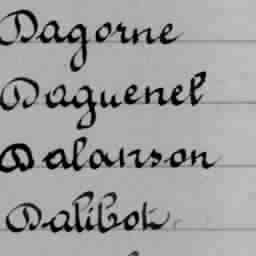 Dagorne
Daguenel
Dalanson
Dalibot